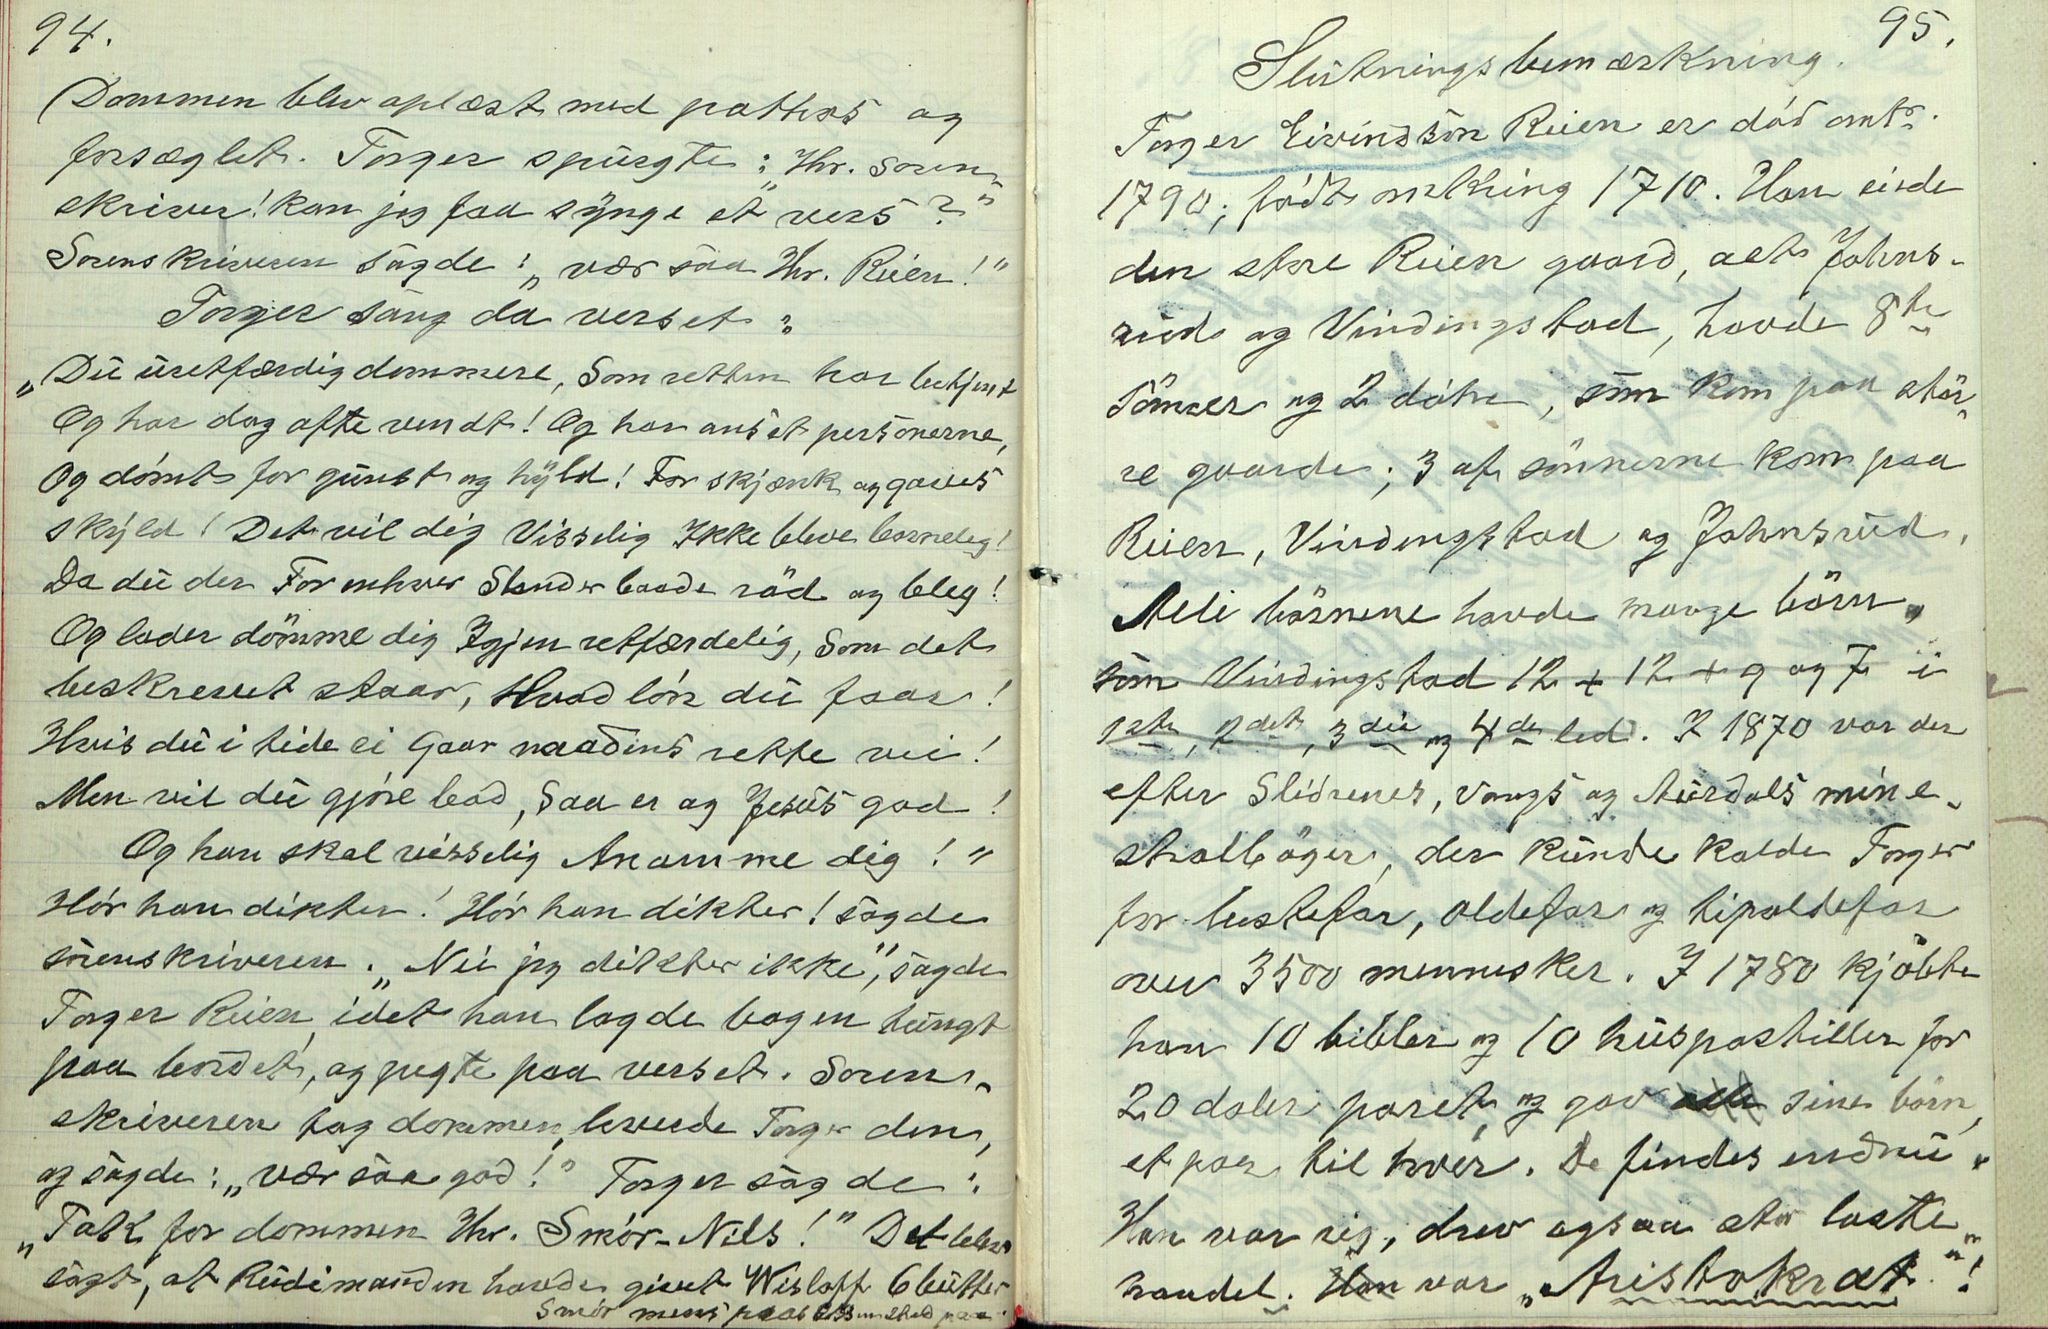 94.
Dommen blev oplæst med pathos og
forseglet. Torger spurgte: „Hr. Soren-
skriver! kan jeg faa synge et vers?"
Sorenskriveren sagde: „vær saa Hr. Reien!"
Torger sang da verset:
„Du uretfærdig dommere, Som retten har betjent
Og har dog ofte vendt! Og har anset personerne,
Og dømt for gunst og hyld! For skjænk og gaves
skyld! Det vil dig Visselig Ikke blive
Da du der For enhver Stander baade rød og bleg!
Og lader dømme dig Igjen retfærdelig, Som det
beskrevet staar, Hvad løn du faar!
Hvis du i tide ei Gaar naadens rette vei!
Men vil du gjøre bod, Saa er og Jesus god!
Og han skal visselig Anamme dig!"
Hør han dikter! Hør han dikter! sagde
sorenskriveren. „Nei jeg dikter ikke", sagde
Torger Reien, idet han lagde bogen tungt
paa bordet, og pegte paa verset. Soren-
skriveren tog dommen, leverde Torger den,
og sagde: „vær saa god!" Torger sagde:
„Takk for dommen Hr. Smør-Nils!" Det blev
sagt, at Rudimanden havde givet Wisloff 6 bütter
Smør mens
95.
Slutningsbemærkning.
Torger Eivindsön Reien er død omtr.
1790; født omkring 1710. Han eiede
den store Reien gaard, alt Johns-
rud og Vindingstad, havde 8te
Sönner og 2 døtre, som kom paa stör-
re gaarde; 3 af sönnerne kom paa
Reien, Vindingstad og Johnsrud.
Alle börnene havde mange börn,
som Vindingstad 12 + 12 + 9 og 7 i
1ste, 2det, 3die og 4de led. I 1870 var der
efter Slidrenes, Vangs og Aurdals mine-
stralböger, der kunde kalde Torger
for bestefar, oldefar og tipoldefar
over 3500 mennesker. I 1780 kjöbte
han 10 bibler og 10 huspostiller for
20 daler paret, og gav sine börn,
et par til hver. De findes endnu.
Han var rig, drev ogsaa stor laste-
handel. Han var „Aristokrat"!